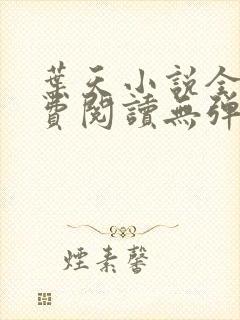 葉天小說全
費閱讀無彈
煙素馨